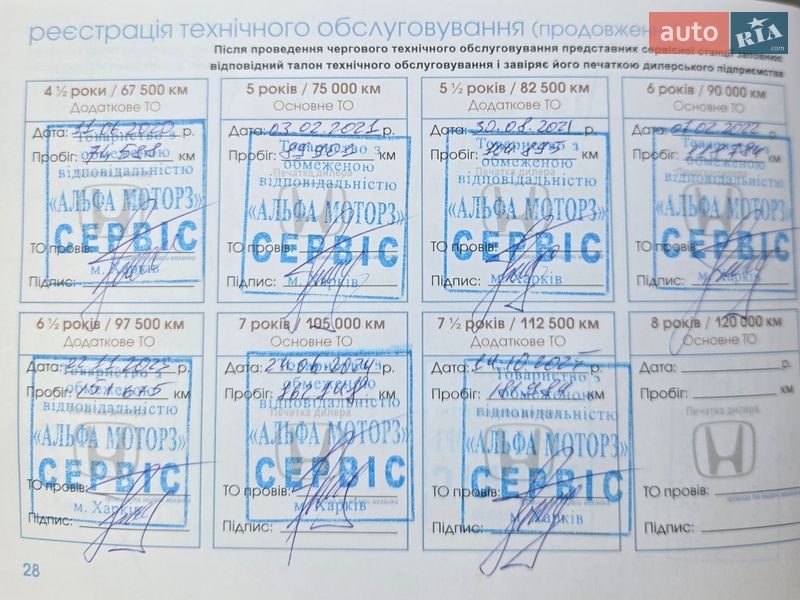 реєстрація технічного обслуговування (продовження
auto RIA .com
Після проведення чергового технічного обслуговування представник сервісної станції заповнює
відповідний талон технічного обслуговування і завіряє його печаткою дилерського підприємства
4 ½ роки / 67 500 км
Додаткове ТО
Дата: 11.06.2020 р.
Пробіг: 74 588 км
Товариство з
обмеженою
відповідальністю
«АЛЬФА МОТОРЗ»
СЕРВІС
м. Харків
ТО провів:
Підпис:
5 років / 75 000 км
Основне ТО
Дата: 03.02.2021 р.
Пробіг: км
Товариство з
обмеженою
Печатка дилера
відповідальністю
«АЛЬФА МОТОРЗ»
СЕРВІС
м. Харків
ТО провів:
Підпис:
5 ½ років / 82 500 км
Додаткове ТО
Дата: 30.08.2021 р.
Пробіг: км
Товариство з
обмеженою
відповідальністю
«АЛЬФА МОТОРЗ»
СЕРВІС
м. Харків
ТО провів:
Підпис:
6 років / 90 000 км
Основне ТО
Дата: 01.02.2022 р.
Пробіг: км
Товариство з
обмеженою
відповідальністю
«АЛЬФА МОТОРЗ»
СЕРВІС
м. Харків
ТО провів:
Підпис:
6 ½ років / 97 500 км
Додаткове ТО
Дата: 22.11.2023 р.
Пробіг: 151 675 км
Товариство з
обмеженою
відповідальністю
«АЛЬФА МОТОРЗ»
СЕРВІС
ТО провів:
м. Харків
Підпис:
7 років / 105 000 км
Основне ТО
Дата: 24.06.2024 р.
Пробіг: км
Товариство з
обмеженою
Печатка дилера
відповідальністю
«АЛЬФА МОТОРЗ»
СЕРВІС
ТО провів:
м. Харків
Підпис:
7 ½ років / 112 500 км
Додаткове ТО
Дата: 14.10.202 р.
Пробіг: км
Товариство з
обмеженою
відповідальністю
«АЛЬФА МОТОРЗ»
СЕРВІС
ТО провів:
м. Харків
Підпис:
8 років / 120 000 км
Основне ТО
Дата: р.
Пробіг: км
Печатка дилера
ТО провів:
Підпис:
28